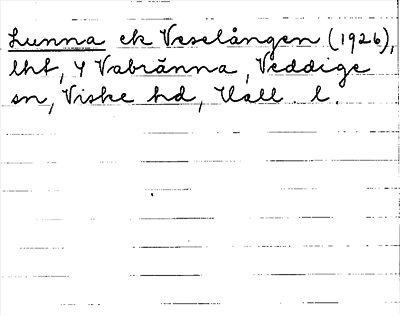 Lunna ek Veselången (1926),
lht, Y Vabränna, Veddige
sn, Viske hd, Hall. l.